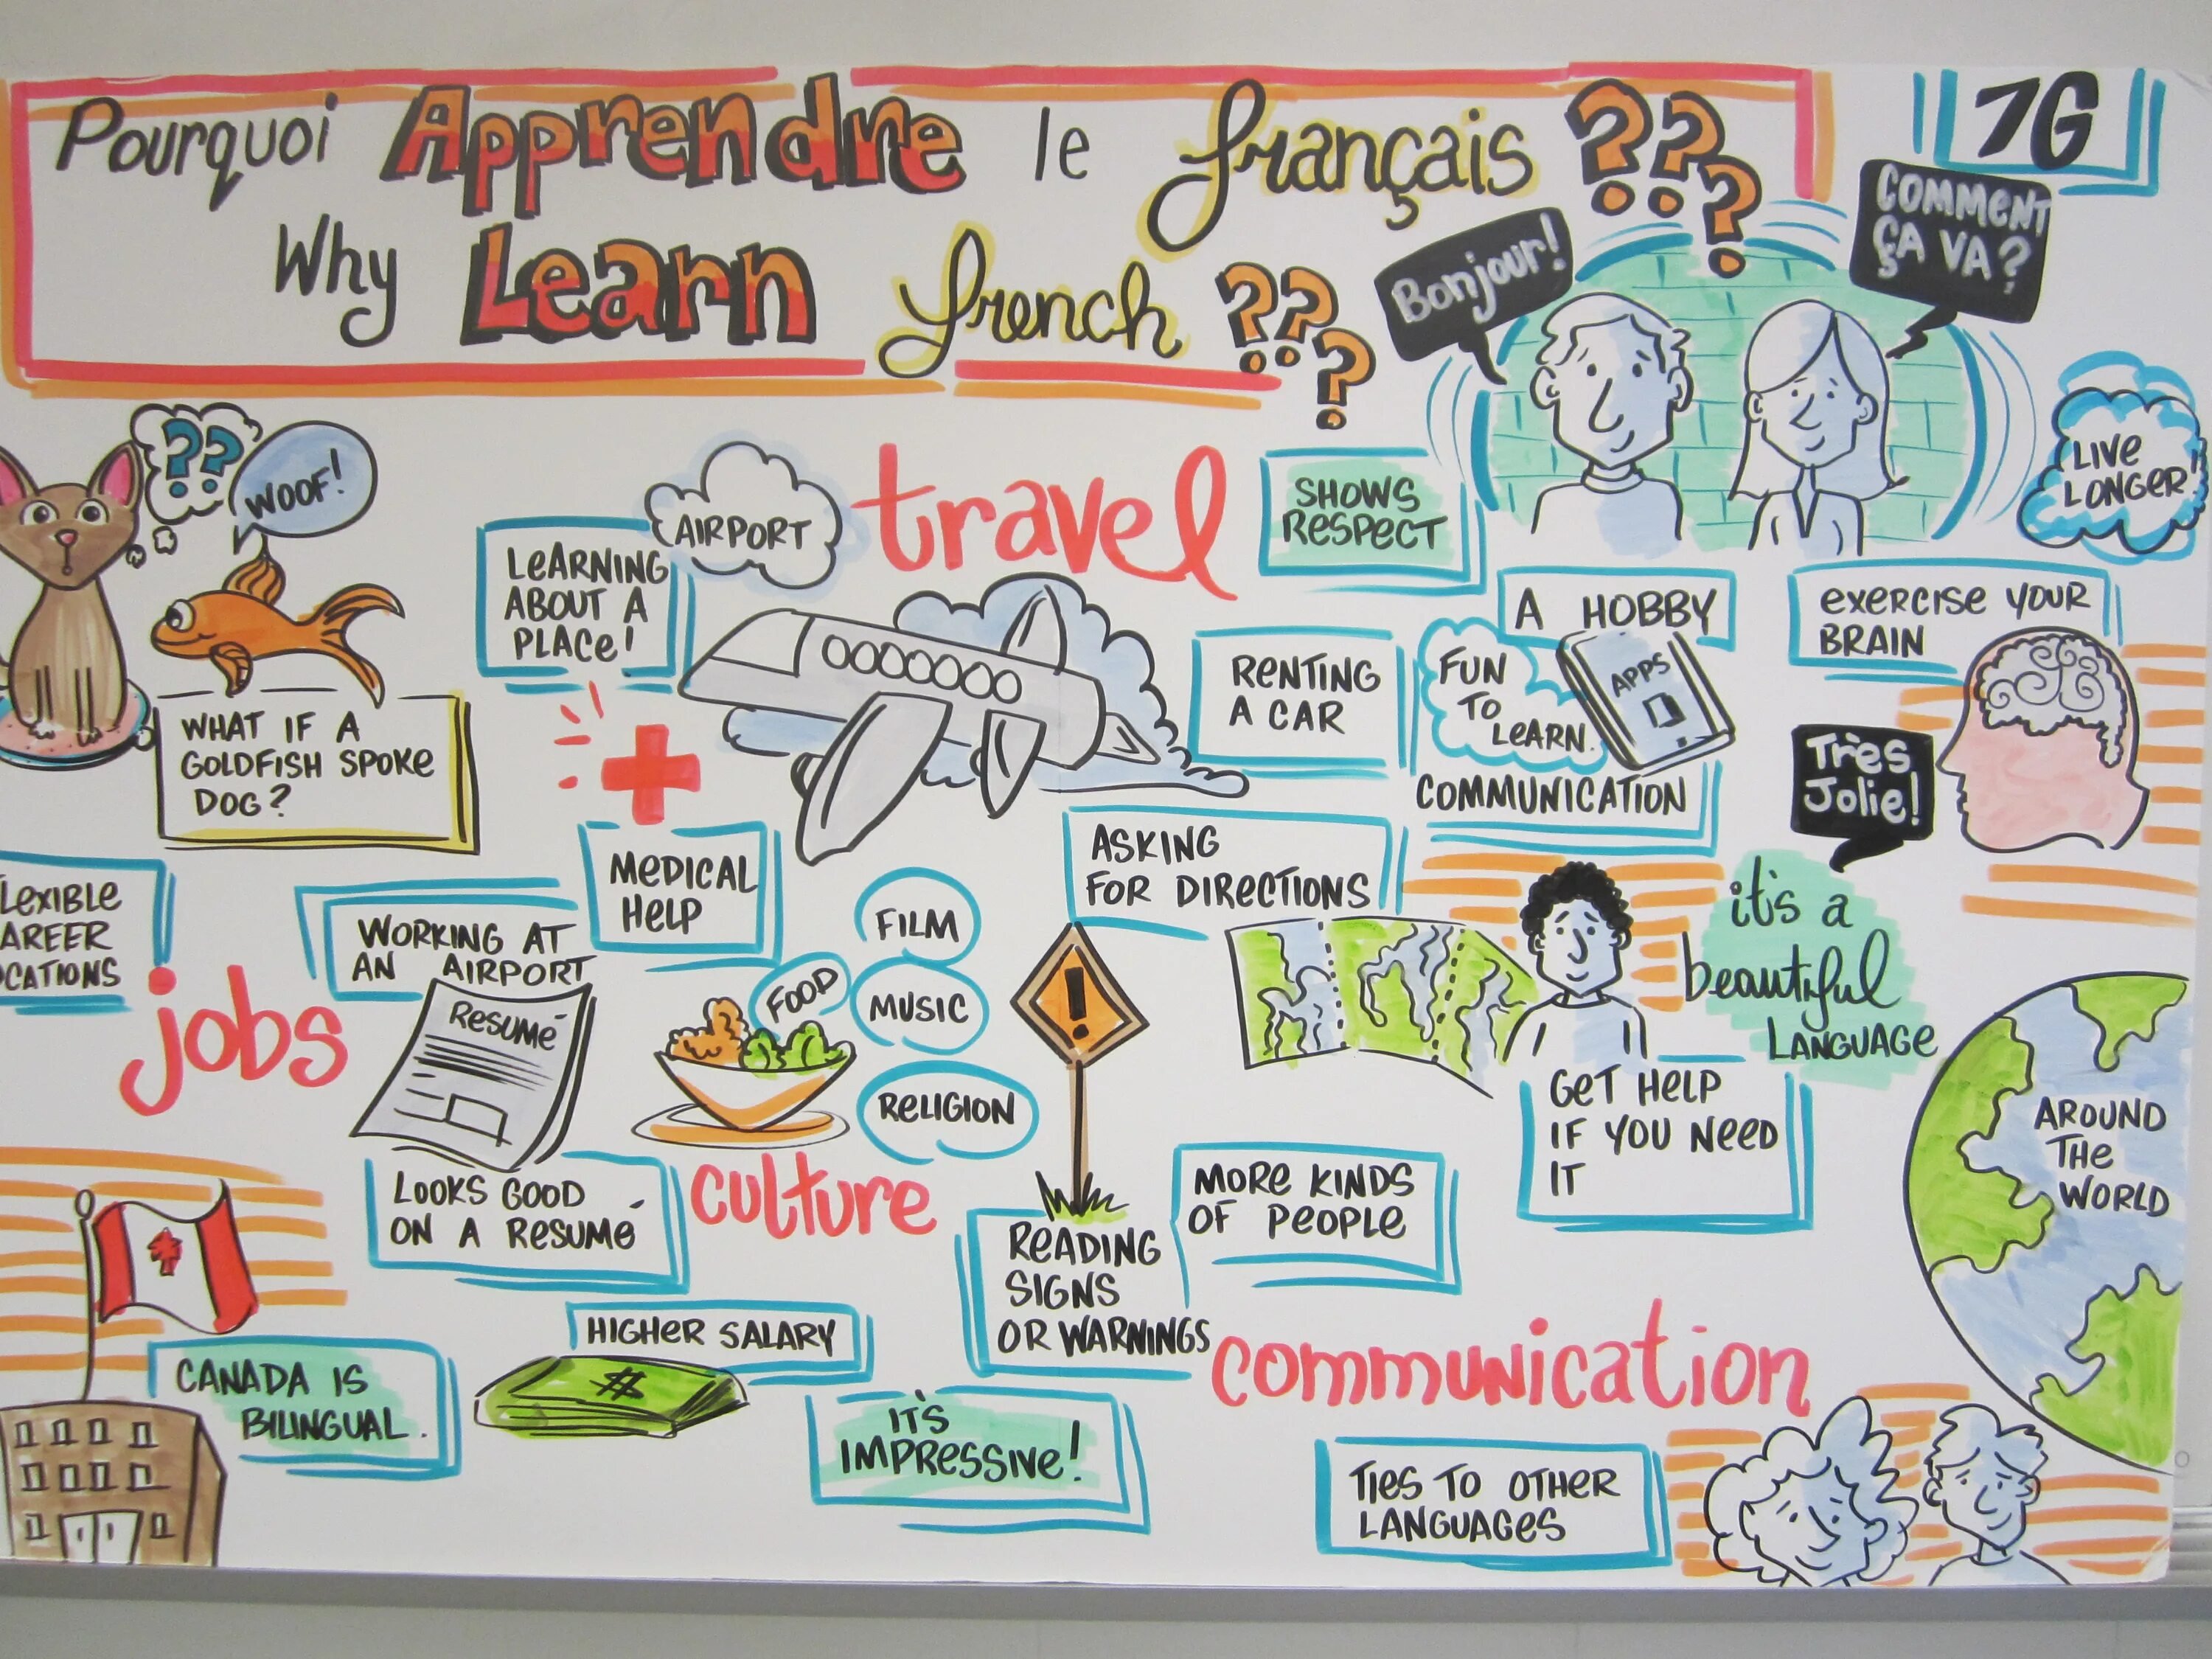 Pourquoi Apprendre le français ???
Why Learn french ???
7G
Bonjour!
COMMENT
ÇA VA?
LIVE
LONGER!
??
WOOF!
WHAT IF A
GOLDFISH SPOKE
DOG?
LEARNING
ABOUT A
PLACE!
AIRPORT
travel
SHOWS
RESPECT
A HOBBY
EXERCISE YOUR
BRAIN
RENTING
A CAR
FUN
TO
LEARN.
APPS
COMMUNICATION
Très
Jolie!
MEDICAL
HELP
ASKING
FOR DIRECTIONS
it's a
beautiful
LANGUAGE
LEXIBLE
AREER
OCATIONS
jobs
WORKING AT
AN AIRPORT
RESUMÉ
LOOKS GOOD
ON A RESUMÉ
FOOD
FILM
MUSIC
RELIGION
culture
!
READING
SIGNS
OR WARNINGS
MORE KINDS
OF PEOPLE
GET HELP
IF YOU NEED
IT
AROUND
THE
WORLD
CANADA IS
BILINGUAL.
HIGHER SALARY
$
IT'S
IMPRESSIVE!
communication
TIES TO OTHER
LANGUAGES